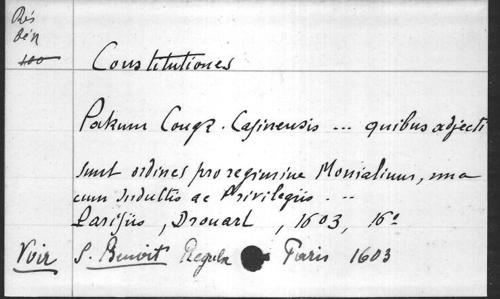 Rés
Bén
100
Constitutiones
Patrum Congr. Casinensis ... quibus adjecti
sunt ordines pro regimine Monialium, una
cum Indultis ac Privilegiis ...
Parisiis, Drouart, 1603, 16º
Voir S. Benoit Regula Paris 1603